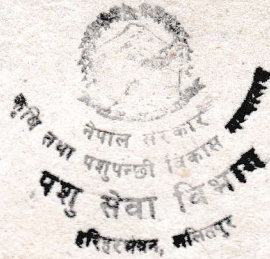 नेपाल सरकार
कृषि तथा पशुपन्छी विकास
पशु सेवा विभाग
हरिहरभवन, ललितपुर